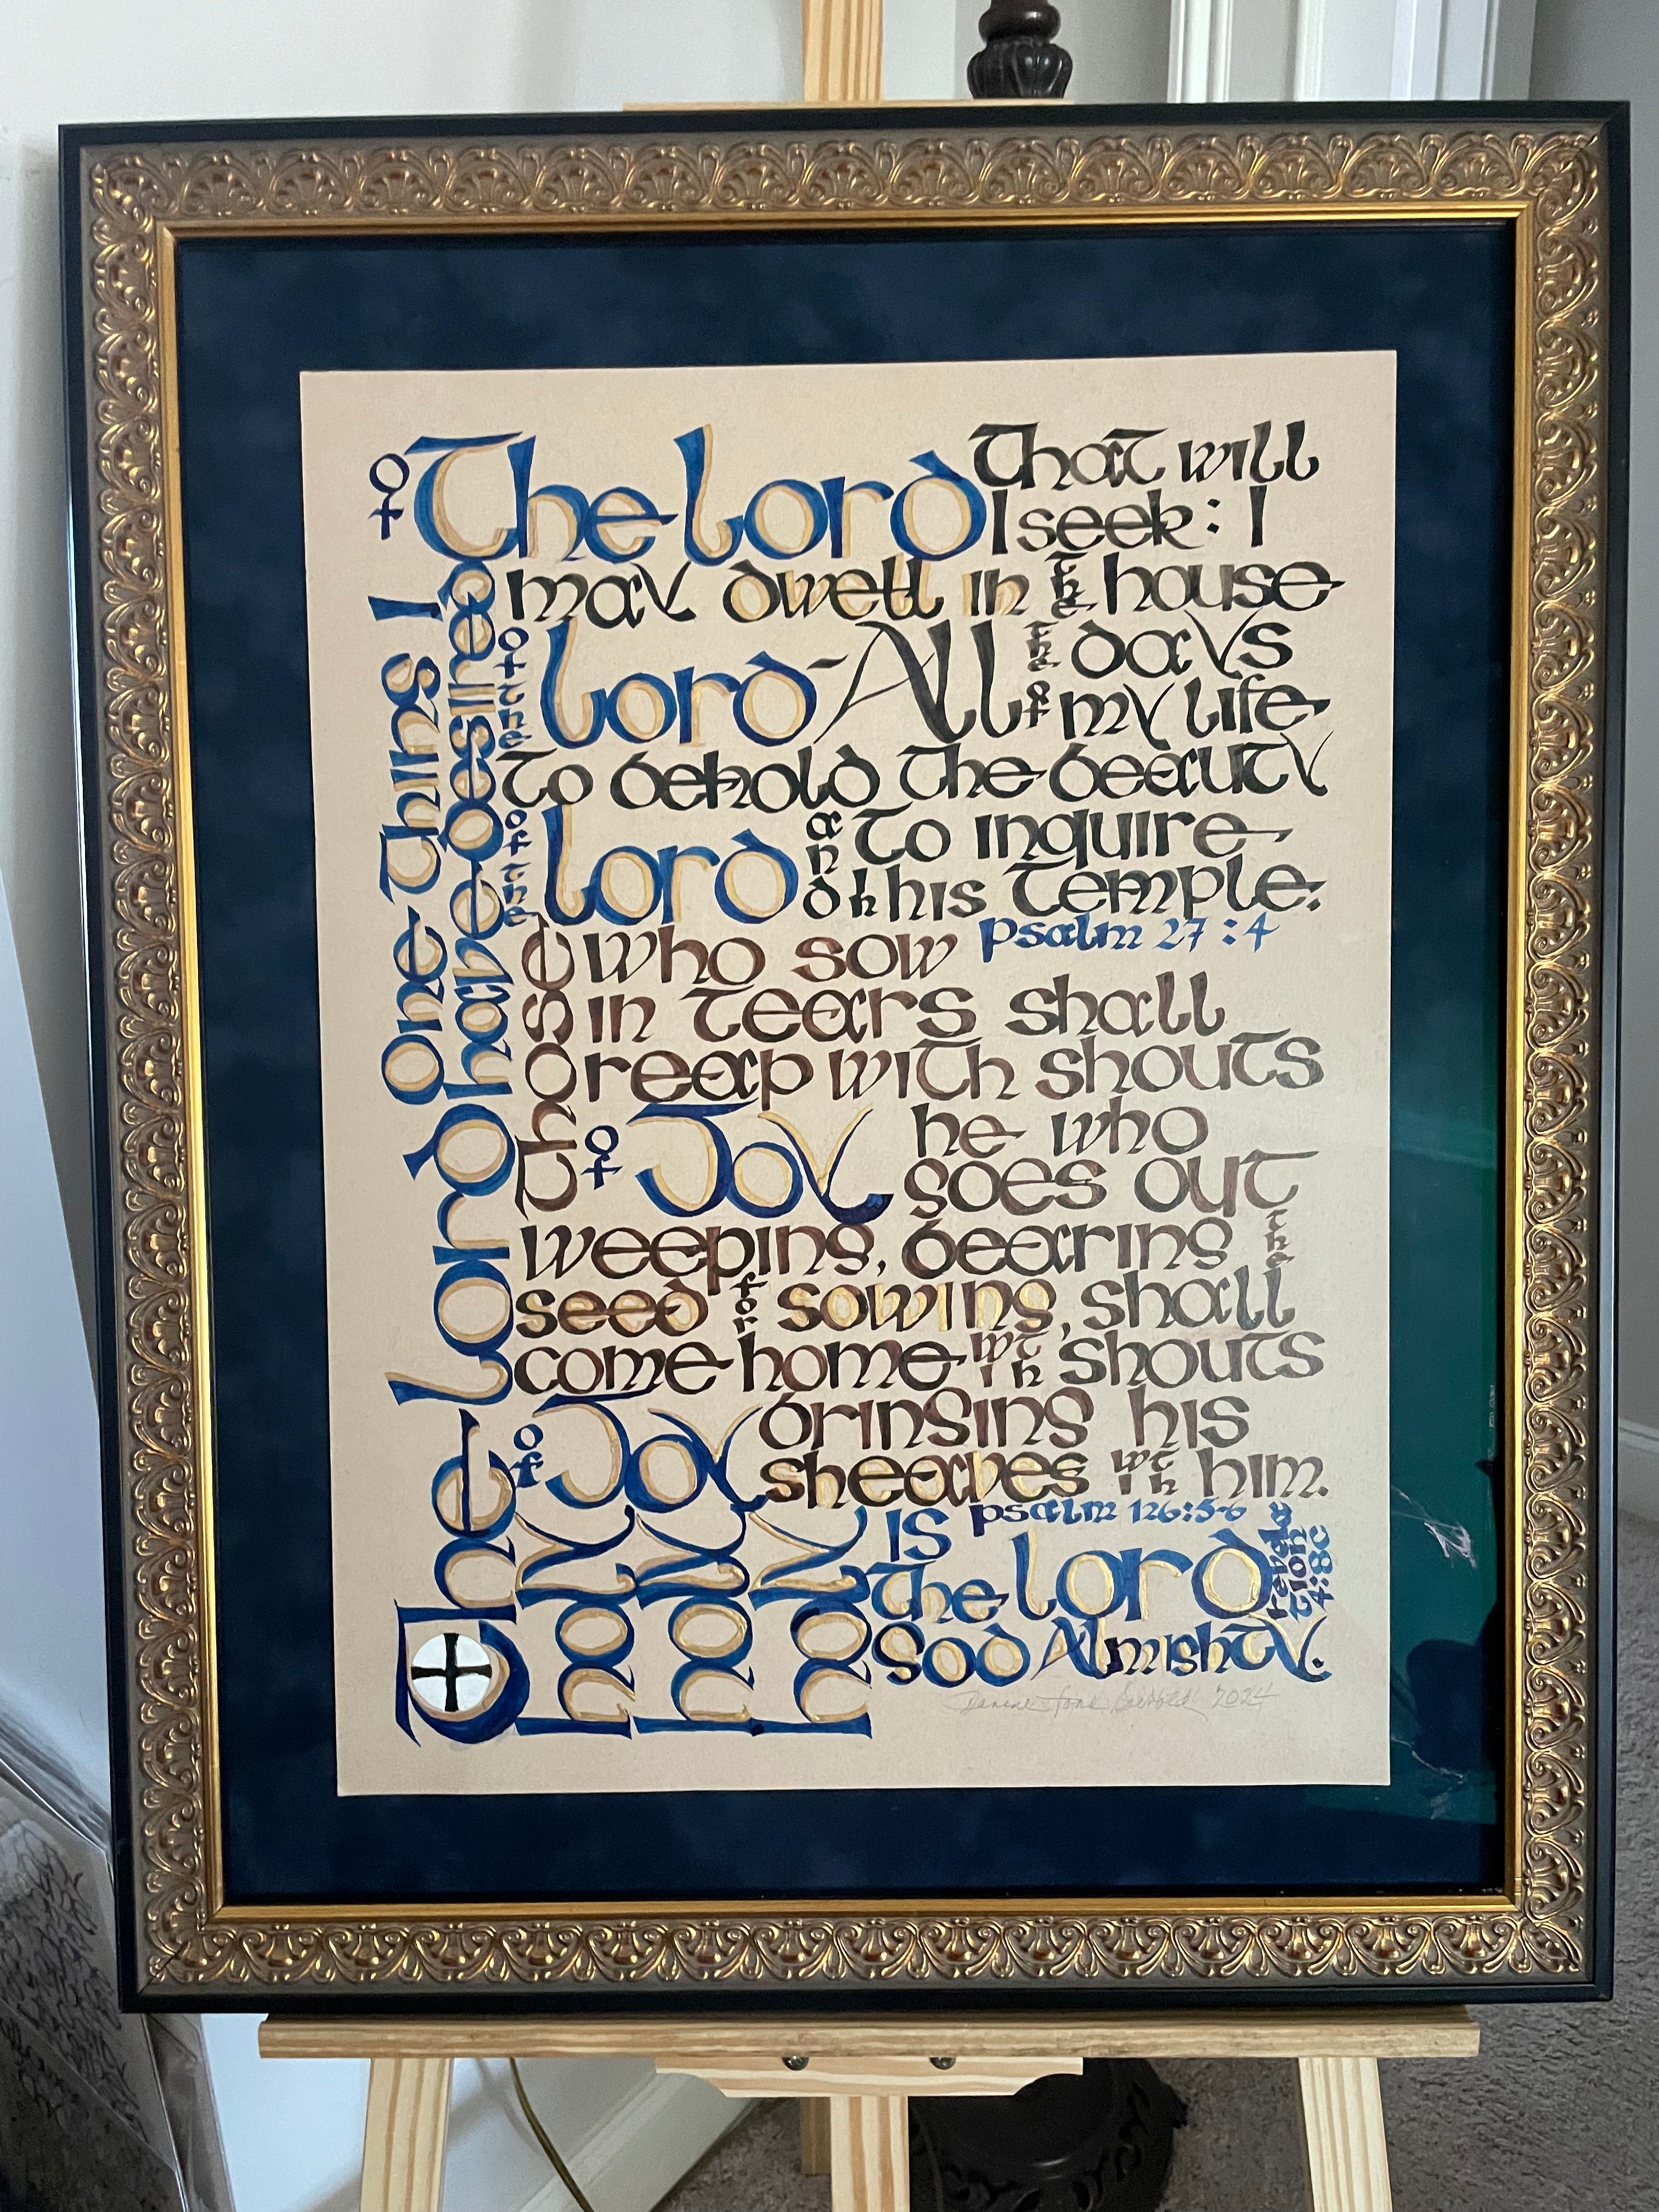 One Thing I
have desired
of The Lord That will
I seek: I
may dwell in the house
of the Lord - All the days
of my life
To behold The beauty
of the Lord and to inquire
in his Temple:
Psalm 27:4
Those who sow
in Tears shall
reap with shouts
of Joy he who
goes out
weeping, bearing the
seed for sowing, shall
come home with shouts
of Joy bringing his
sheaves with him.
Psalm 126:5-6
The Lord
holy holy holy is
the Lord
God Almighty.
revelation 4:8c
2024